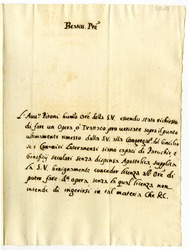 Beat.mo Pre
L'Auu.to Pitoni humil.o Ore della S.V. essendo stato richiesto
di fare un Opera ò Trattato pro ueritate sopra il punto
ultimamente rimesso dalla S.V. alla Congreg.ne del Concilio
se i Canonici Lateranensi siano capaci di Parochie, e
Beneficij secolari senza dispensa Apostolica supplica
la S.V. benignamente conceder licenza all'Ore di
poter fare d.a opera, senza la qual licenza non
intende di ingerirsi in tal materia Che &c.